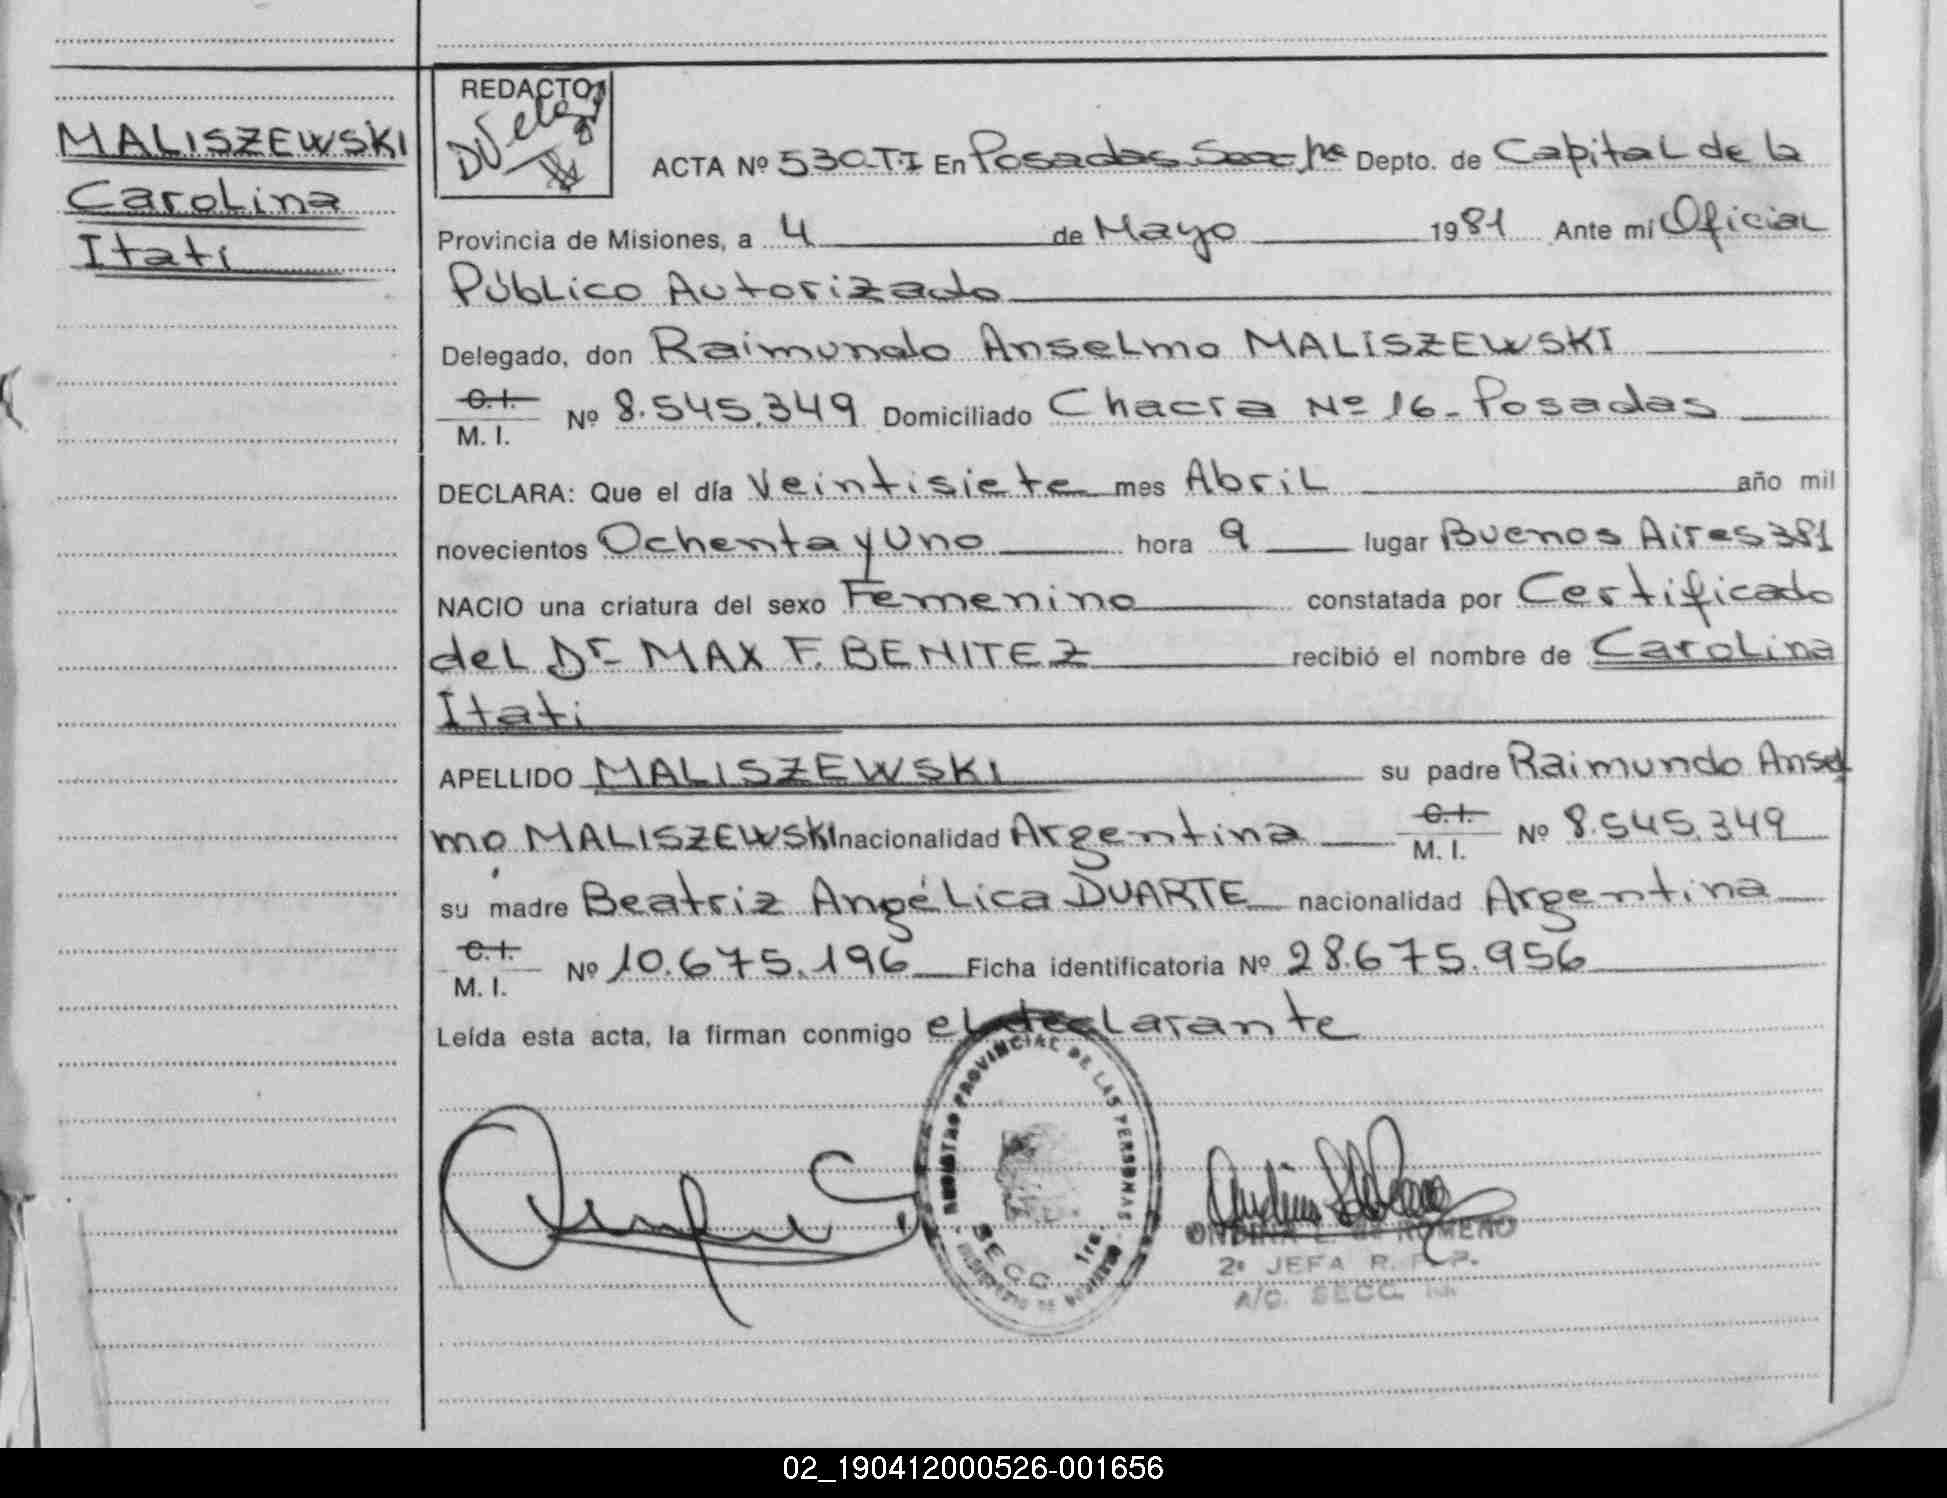 MALISZEWSKI
Carolina
Itatí
REDACTO
ACTA Nº 530.T.I En Posadas Secc 1ra Depto. de Capital de la
Provincia de Misiones, a 4 de Mayo 1981 Ante mí Oficial
Público Autorizado
Delegado, don Raimundo Anselmo MALISZEWSKI
C.I.
M. I. Nº 8.545.349 Domiciliado Chacra Nº 16 - Posadas
DECLARA: Que el día Veintisiete mes Abril año mil
novecientos Ochenta y Uno hora 9 lugar Buenos Aires 381
NACIO una criatura del sexo Femenino constatada por Certificado
del Dr. MAX F. BENITEZ recibió el nombre de Carolina
Itatí
APELLIDO MALISZEWSKI su padre Raimundo Ansel
mo MALISZEWSKI nacionalidad Argentina C.I.
M. I. Nº 8.545.349
su madre Beatriz Angélica DUARTE nacionalidad Argentina
C.I.
M. I. Nº 10.675.196 Ficha identificatoria Nº 28.675.956
Leída esta acta, la firman conmigo el declarante
REGISTRO PROVINCIAL DE LAS PERSONAS
SECC. 1ra.
ONDINA L. de ROMERO
2ª JEFA R. P. P.
A/C. SECC. 1ra.
02_190412000526-001656